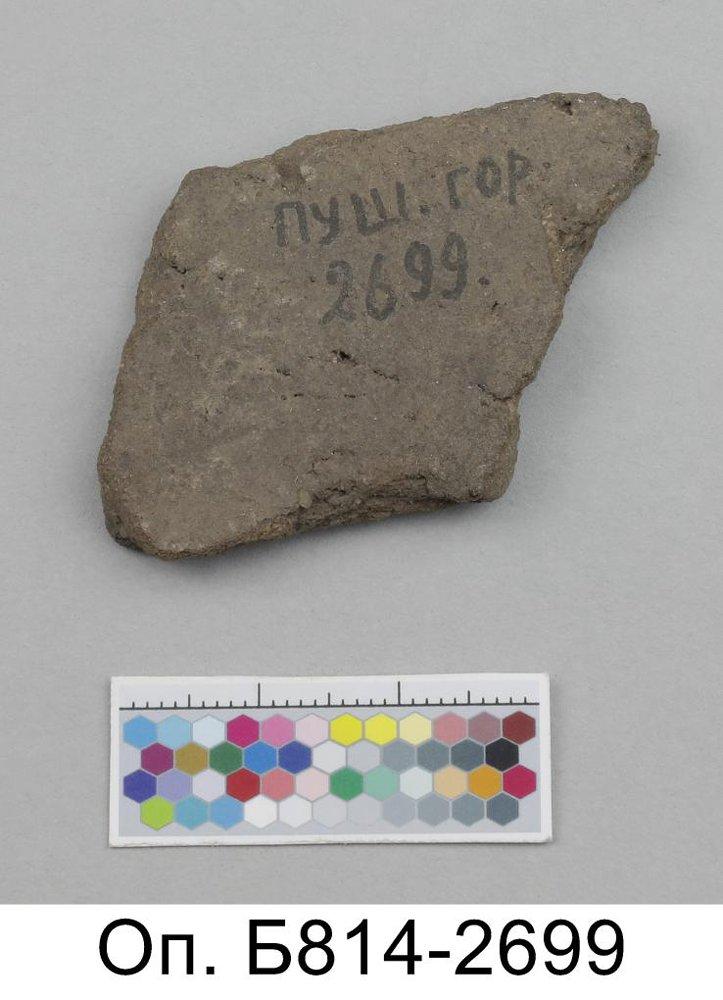 ПУШ. ГОР.
2699.
Оп. Б814-2699